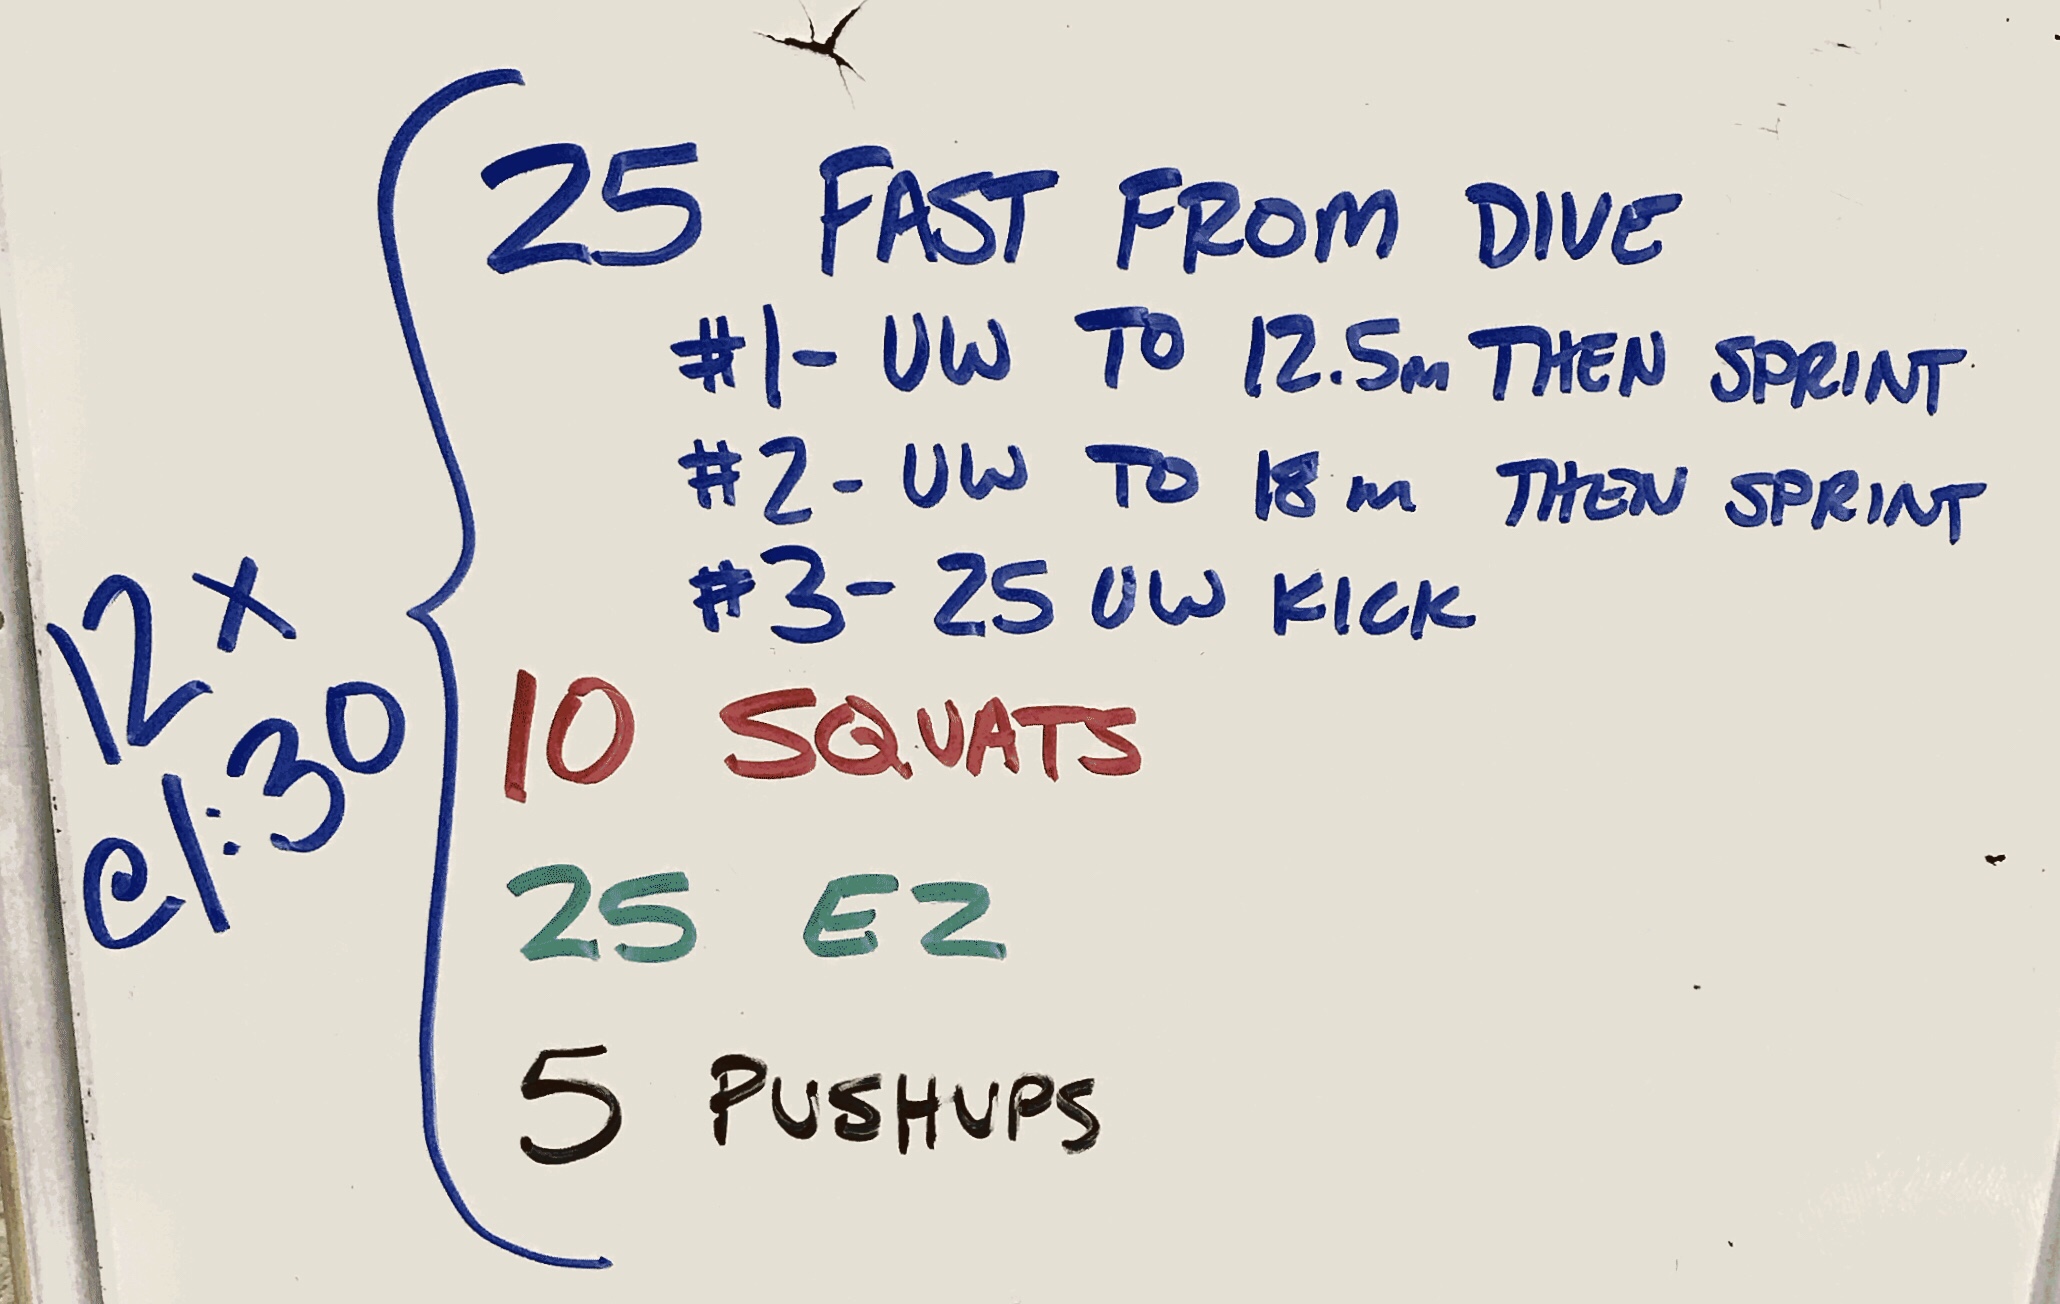 25 FAST FROM DIVE
#1- UW TO 12.5m THEN SPRINT
#2- UW TO 18m THEN SPRINT
#3- 25 UW KICK
12 x
@1:30
10 SQUATS
25 EZ
5 PUSHUPS